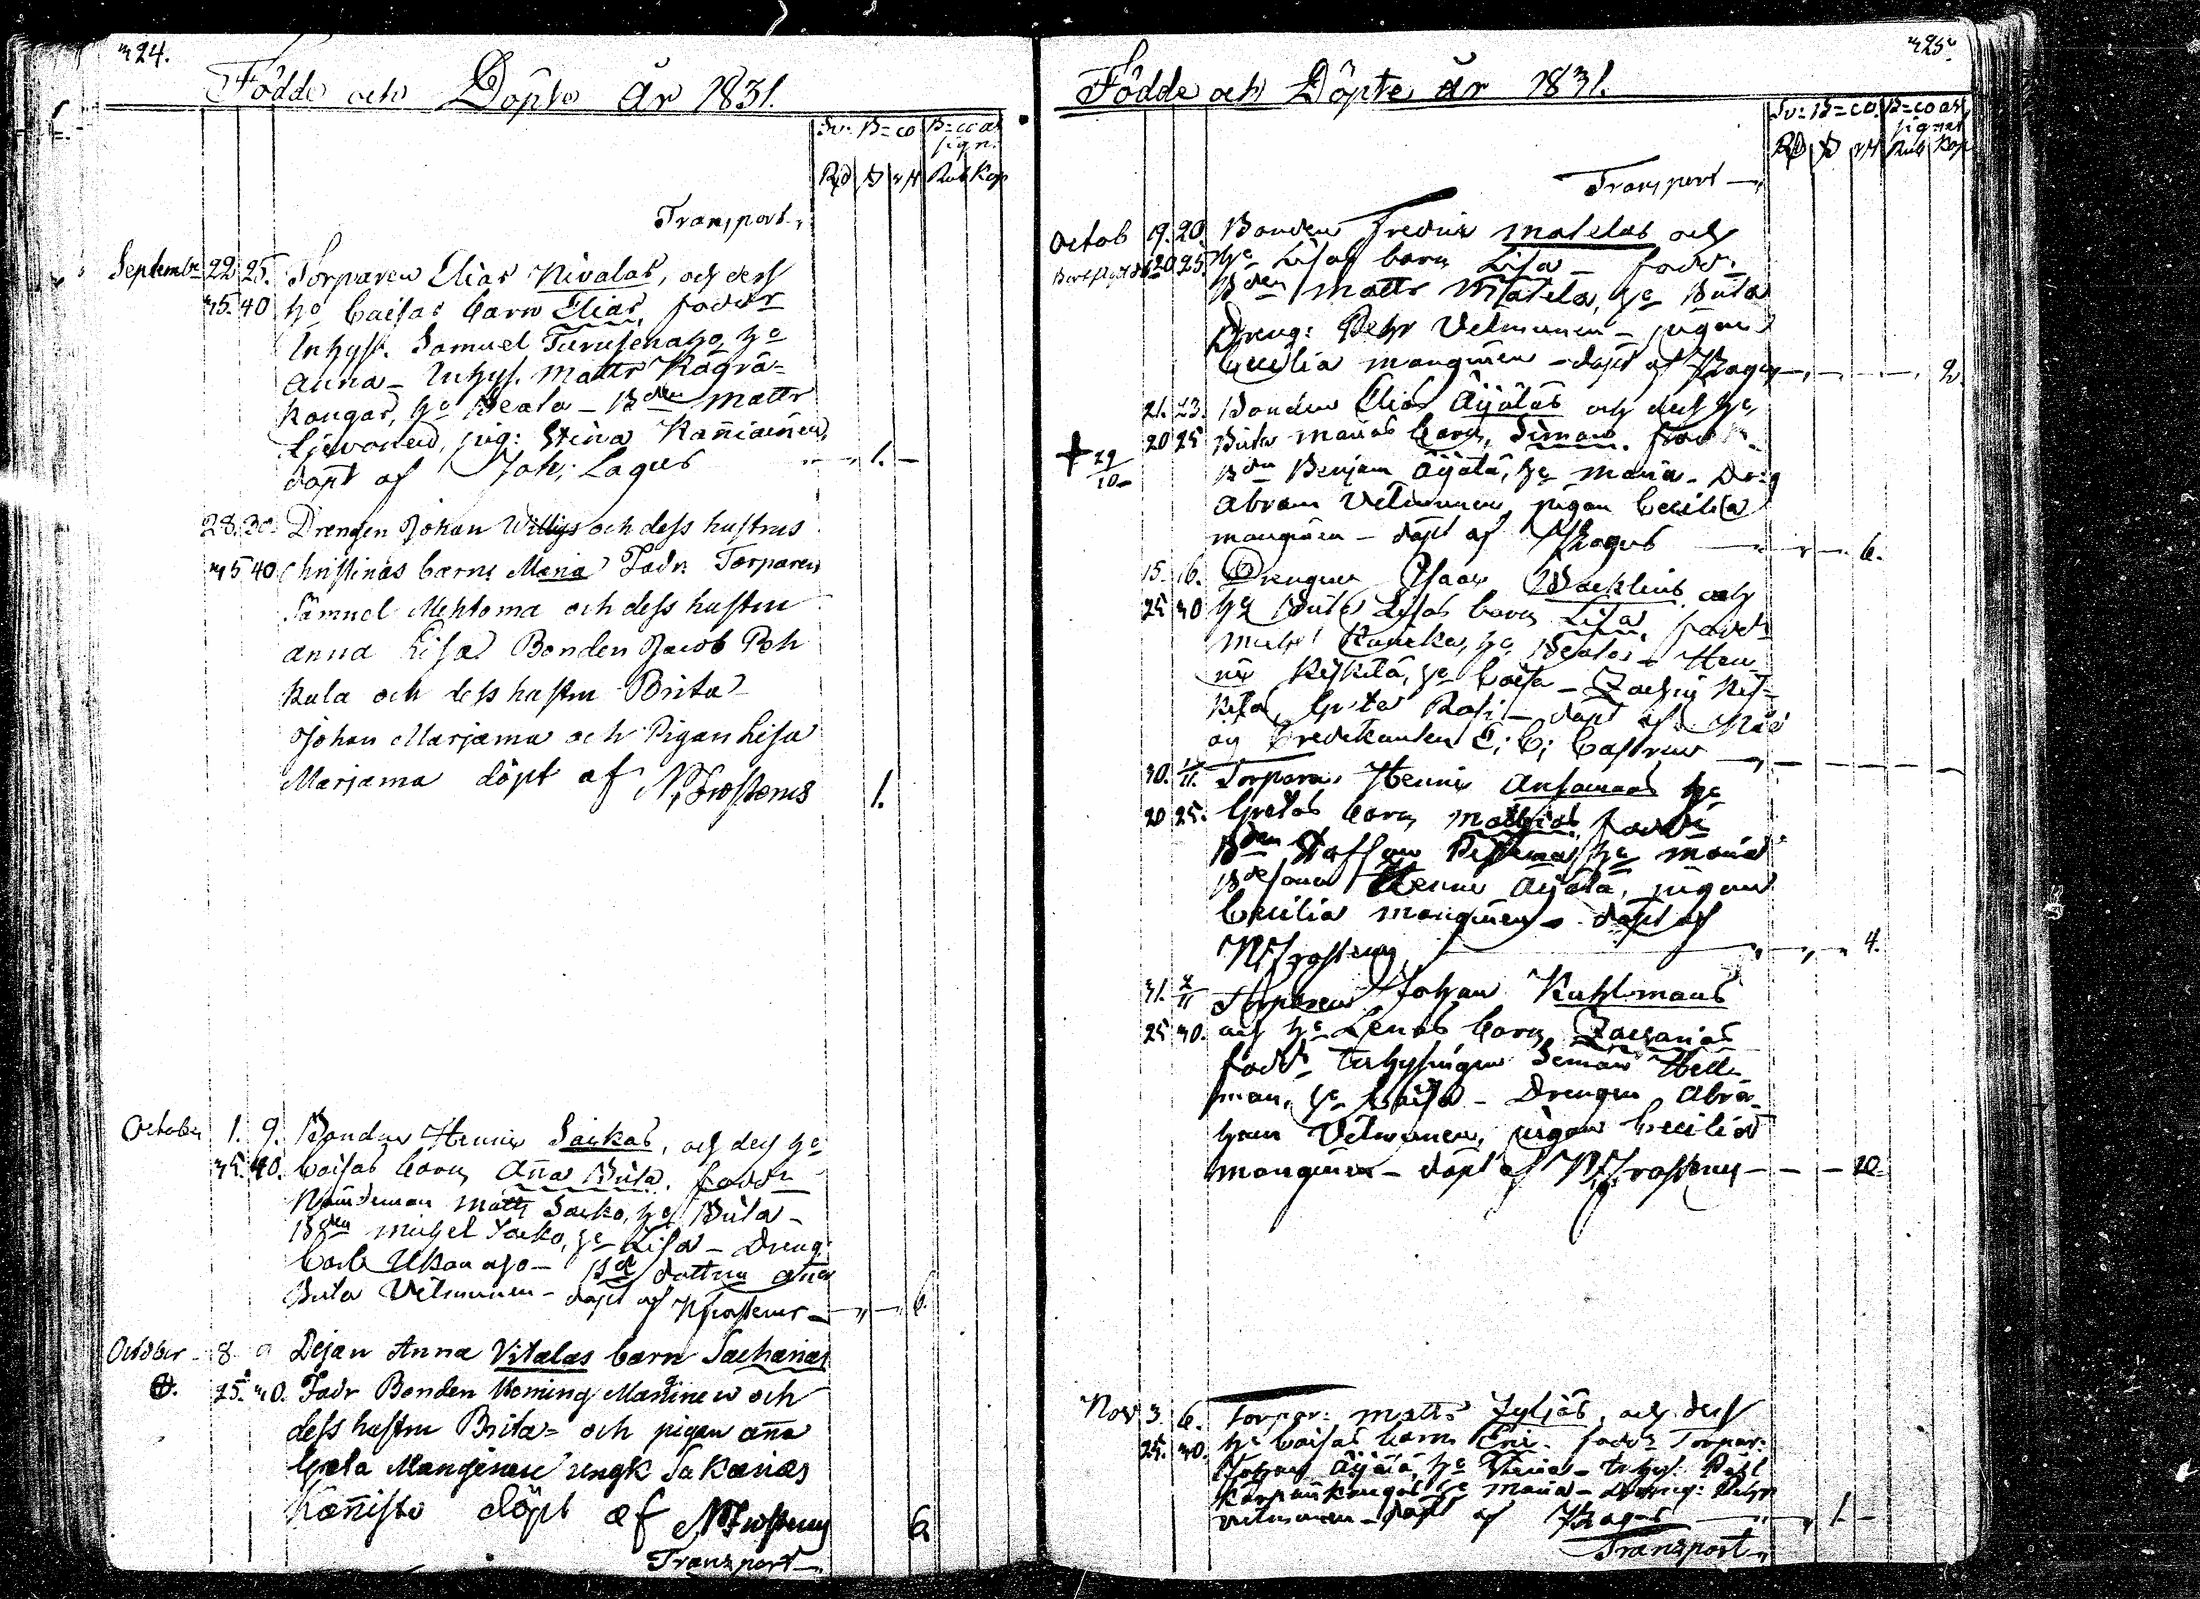 324.
Födde och Döpte År 1831.
Sv: B=co B=co as
sign.
Rd S rst Rub Kop
Transport
September 22 25. Torparen Elias Nivalas, och dess
35. 40 h:o Caisas barn Elias, fadr
Inhys. Samuel Turusenaho, h:o
Anna - Inhys. Matts Kägrä=
kangas, h:o Beata - Bden Matts
pig: Stina Kañiainen
döpt af Joh: Lagus 1. -
28. 30. Drengen Johan Willigs och dess hustrus
35 40 Christinas barn Maria Fadr Torparen
Samuel Mehtoma och dess hustru
Anna Lisa Bonden Jacob Poh
kula och dess hustru Brita
Johan Marjama och Pigan Lisa
Marjama döpt af N. Frosterus 1.
October 1. 9. Bonden Henric Sarkas, och dess h:o
35. 40. Caisas barn Aña Brita. fadr
Nämdeman Matts Sarko, h:o Brita -
Bden Michel Sarko, h:o Lisa - Dreng
Carl Ukonaho - Bde dottren Aña
Brita Vilmunen - döpt af N Frosterus - 6.
October 8. 9 Pejan Anna Vitalas barn Sacharias
25. 30. Fadr Bonden Henning Manninen och
dess hustru Brita - och pigan aña
Greta Manginen Sakarias
Kañisto döpt af N Frosterus 6
Transport
325.
Födde och Döpte År 1831.
Sv: B=co. B=co as
signat
Rd S rst Rub Kop
Transport
Octob 19. 20. Bonden Fredric Matelas och
20. 25. h:o Lisas barn Lisa - fadr
Bden Matts Matela, h:o Brita
Dreng: Pehr Vilmunen - pigan
Cecilia Manginen - döpt af Lagus 2.
21. 23. Bonden Elias Äijäläs och dess h:o
20 25 Brita Marias barn, Simon. fadr
29/10 Bden Benjam Äijälä, h:o Maria - Dreng
Abram Vilmunen pigan Cecilia
Manginen - döpt af Lagus 6.
15. 16. Drengen Isaac Wacklins och
25 30 h:o Brita Lisas barn Lisa, fadr
h:o Beata - Hen=
ric Keskilä, h:o Caisa - Zachris Kes=
kilä, Greta Rasi - döpt af
Predikanten E: C: Castren
30. 1/11. Torparen Henric Ansamaas h:o
20 25. Gretas barn Mathias fadr
Bden Staffan h:o Maria
Bdesonen Henric Äijälä, pigan
Cecilia Manginen - döpt af
N Frosterus 4.
31. 2/11 Torparen Johan Kuhlmans
25 30. och h:o Lenas barn Zacharias
fadr Inhysingen Simon Hell=
man, h:o Caisa - Drengen Abra=
ham Vilmunen, pigan Cecilia
Manginen - döpt af N Frosterus - - - 10.
Nov 3. 6. Torpar: Matts Jyljäs, och dess
25. 30. h:o Caisas barn Eric. fadr Torpar:
Johan Äijälä, h:o Stina - Inhys. Påhl
Karpankangas h:o Maria - Dreng: Pehr
Vilmunen - döpt af Lagus 1. -
Transport